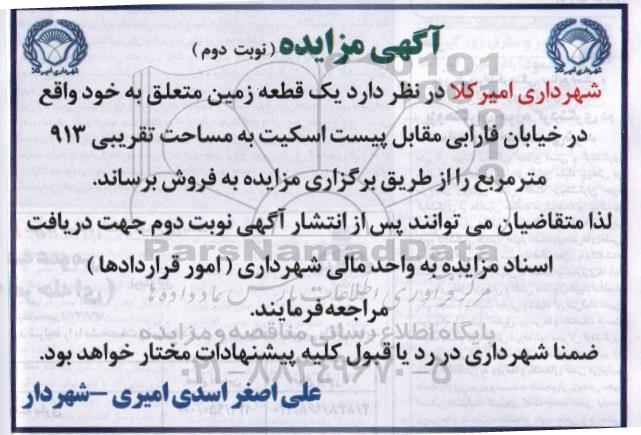 آگهی مزایده ( نوبت دوم )
شهرداری امیرکلا در نظر دارد یک قطعه زمین متعلق به خود واقع
در خیابان فارابی مقابل پیست اسکیت به مساحت تقریبی ۹۱۳
مترمربع را از طریق برگزاری مزایده به فروش برساند.
لذا متقاضیان می توانند پس از انتشار آگهی نوبت دوم جهت دریافت
اسناد مزایده به واحد مالی شهرداری ( امور قراردادها )
مراجعه فرمایند.
ضمنا شهرداری در رد یا قبول کلیه پیشنهادات مختار خواهد بود.
علی اصغر اسدی امیری – شهردار
شهرداری امیرکلا
شهرداری امیرکلا
ParsNamadData
مرکز فرآوری اطلاعات پارس نماد داده ها
پایگاه اطلاع رسانی مناقصه و مزایده
۰۲۱-۸۸۳۴۹۶۷۰-۵